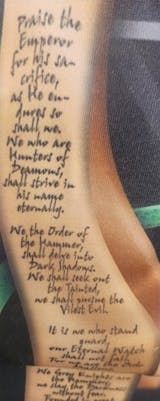 Praise the
Emperor
for his sa-
crifice,
as He en-
dures so
shall we.
We who are
Hunters of
Deamons,
shall strive in
his name
eternally.
We the Order of
the Hammer,
shall delve into
Dark Shadows.
We shall seek out
the Tainted,
we shall purging the
Vilest Evil.
It is we who stand
guard,
our Eternal Watch
shall not fail
We Grey Knights are
the Hammer,
we slay the Daemons
without fear.